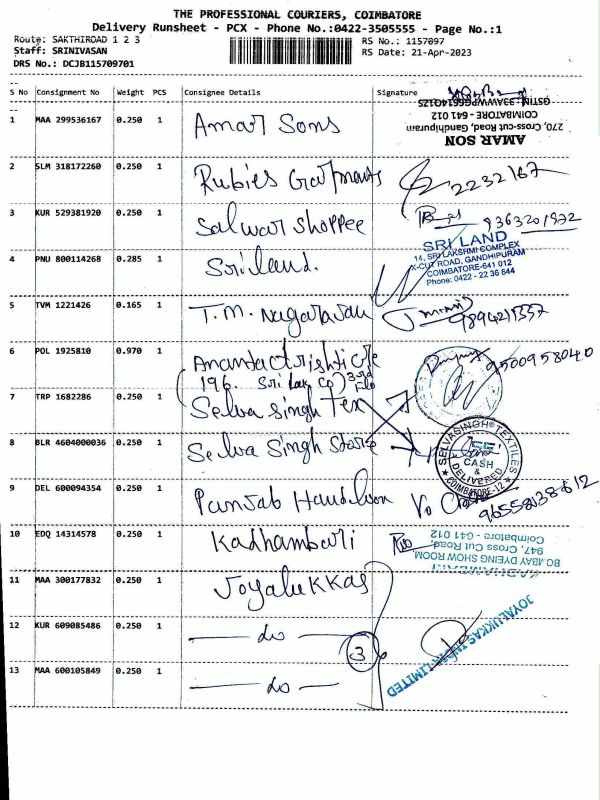 THE PROFESSIONAL COURIERS, COIMBATORE
Delivery Runsheet - PCX - Phone No.:0422-3505555 - Page No.:1
Route: SAKTHIROAD 1 2 3
RS No.: 1157097
Staff: SRINIVASAN
RS Date: 21-Apr-2023
DRS No.: DCJB115709701
S No Consignment No Weight PCS Consignee Details Signature
1 MAA 299536167 0.250 1 Amar Sons
AMAR SON
270, Cross-cut Road, Gandhipuram
COIMBATORE - 641 012
2 SLM 318172260 0.250 1 Rubies Garments 2232167
3 KUR 529381920 0.250 1 Salwar Shoppee
4 PNU 800114268 0.285 1 Sri land.
SRI LAND
14, SRI LAKSHMI COMPLEX
X-CUT ROAD, GANDHIPURAM
COIMBATORE-641 012
Phone: 0422 - 22 36 644
5 TVM 1221426 0.165 1 T.M. Nagarajan
6 POL 1925810 0.970 1
196.
9500958040
7 TRP 1682286 0.250 1 Selva Singh Tex
8 BLR 4604000036 0.250 1 Selva Singh Stores
SELVASINGH TEXTILES
CASH
&
DELIVERED
COIMBATORE-12
9 DEL 600094354 0.250 1 Punjab Handloom
10 EDQ 14314578 0.250 1 Kadhambari
BOMBAY DYEING SHOW ROOM
947, Cross Cut Road,
Coimbatore - 641 012
11 MAA 300177832 0.250 1 Joyalukkas
12 KUR 609085486 0.250 1 — do —
3
13 MAA 600105849 0.250 1 — do —
JOYALUKKAS INDIA LIMITED